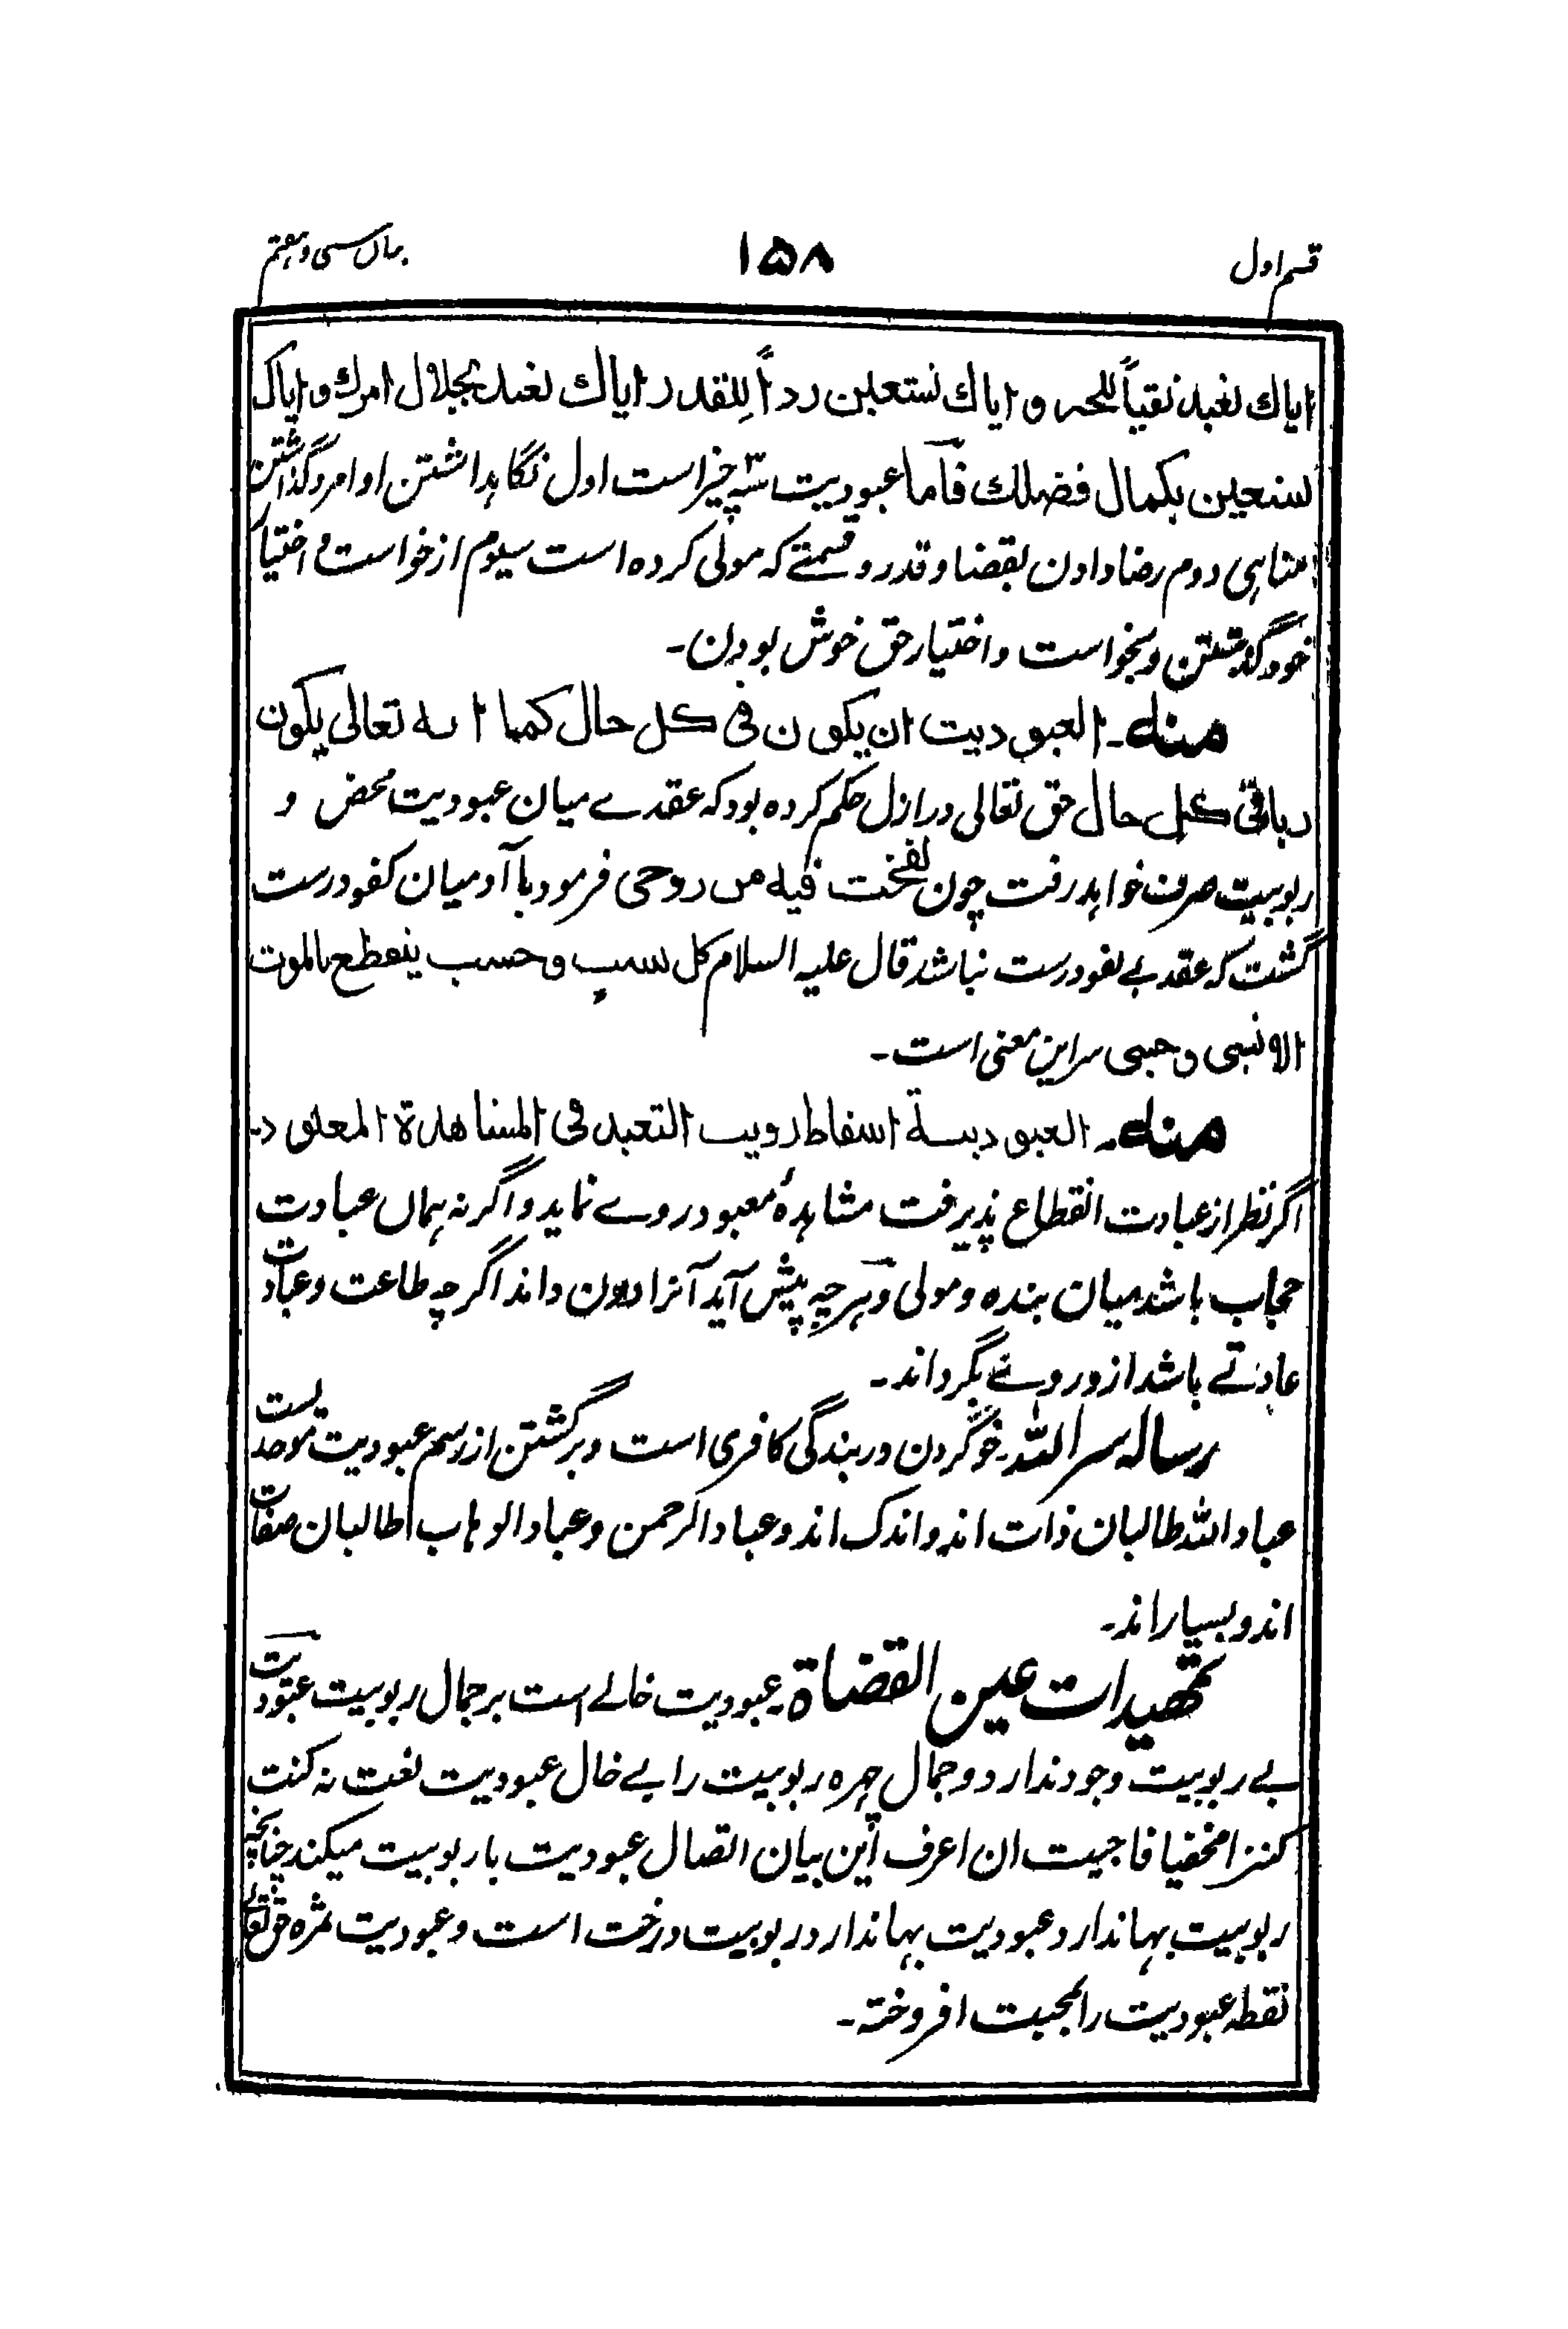 قسم اول ۱۵۸ بیان سی و هفتم
ایاك نعبد نفیاً للجبر و ایاك نستعین رداً للقدر ایاك نعبد بجلال امرك و ایاك
نستعین بکمال فضلك فاما عبودیت سه چیز است اول نگاهداشتن اوامر و گذاشتن
مناهی دوم رضا دادن بقضا و قدر و قسمتے که مولی کرده است سیوم از خواست و اختیار
خود گذشتن و بخواست و اختیار حق خوش بودن۔
منه۔ العبودیت ان یکون فی کل حال کما انه تعالی یکون
ربا فی کل حال حق تعالی در ازل حکم کرده بود که عقدے میان عبودیت محض و
ربوبیت صرف خواهد رفت چون نفخت فیه من روحی فرمود با آدمیان کفو درست
گشت که عقد بے کفو درست نباشد قال علیه السلام کل سبب و حسب ینقطع بالموت
الا نسبی و حبی سر این معنی است۔
منه۔ العبودیة اسقاط رویت التعبد فی المشاهدة المعبود۔
اگر نظر از عبادت انقطاع پذیرفت مشاهدۂ معبود روے نماید و اگر نه همان عبادت
حجاب باشد میان بنده و مولی و هر چه پیش آید آنرا دون داند اگر چه طاعت و عبادت
عادتے باشد از و روے بگرداند۔
رساله سر الله۔ خو کردن در بندگی کافری است و برگشتن از رسم عبودیت موحدیست
عباد الله طالبان ذات اند و اندک اند و عباد الرحمن و عباد الوهاب طالبان صفات
اند و بسیار اند۔
تمهیدات عین القضاة۔ عبودیت خالے است بر جمال ربوبیت عبودیت
بے ربوبیت وجود ندارد و جمال چهره ربوبیت را بے خال عبودیت نعت نه کنت
کنزا مخفیا فاحببت ان اعرف این بیان اتصال عبودیت با ربوبیت میکند چنانچه
ربوبیت بها ندارد عبودیت بها ندارد ربوبیت درخت است و عبودیت ثمره حق تعالی
نقطه عبودیت را بمحبت افروخته۔